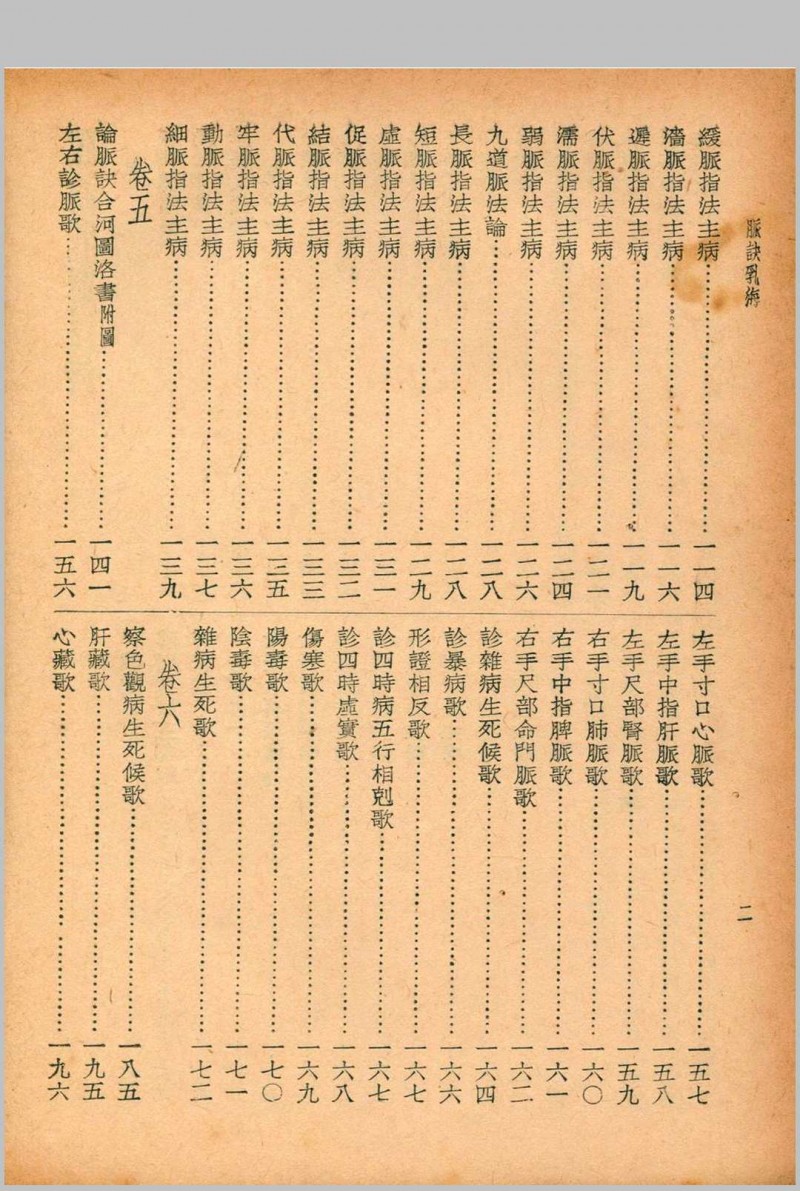 脈訣乳海
二
緩脈指法主病……一一四
濇脈指法主病……一一六
遲脈指法主病……一一九
伏脈指法主病……一二一
濡脈指法主病……一二四
弱脈指法主病……一二六
九道脈法論……一二八
長脈指法主病……一二八
短脈指法主病……一二九
虛脈指法主病……一三一
促脈指法主病……一三二
結脈指法主病……一三三
代脈指法主病……一三五
牢脈指法主病……一三六
動脈指法主病……一三七
細脈指法主病……一三九
卷五
論脈訣合河圖洛書附圖……一四一
左右診脈歌……一五六
左手寸口心脈歌……一五七
左手中指肝脈歌……一五八
左手尺部腎脈歌……一五九
右手寸口肺脈歌……一六〇
右手中指脾脈歌……一六一
右手尺部命門脈歌……一六二
診雜病生死候歌……一六四
診暴病歌……一六六
形證相反歌……一六七
診四時病五行相剋歌……一六七
診四時虛實歌……一六八
傷寒歌……一六九
陽毒歌……一七〇
陰毒歌……一七一
雜病生死歌……一七二
卷六
察色觀病生死候歌……一八五
肝藏歌……一九五
心藏歌……一九六